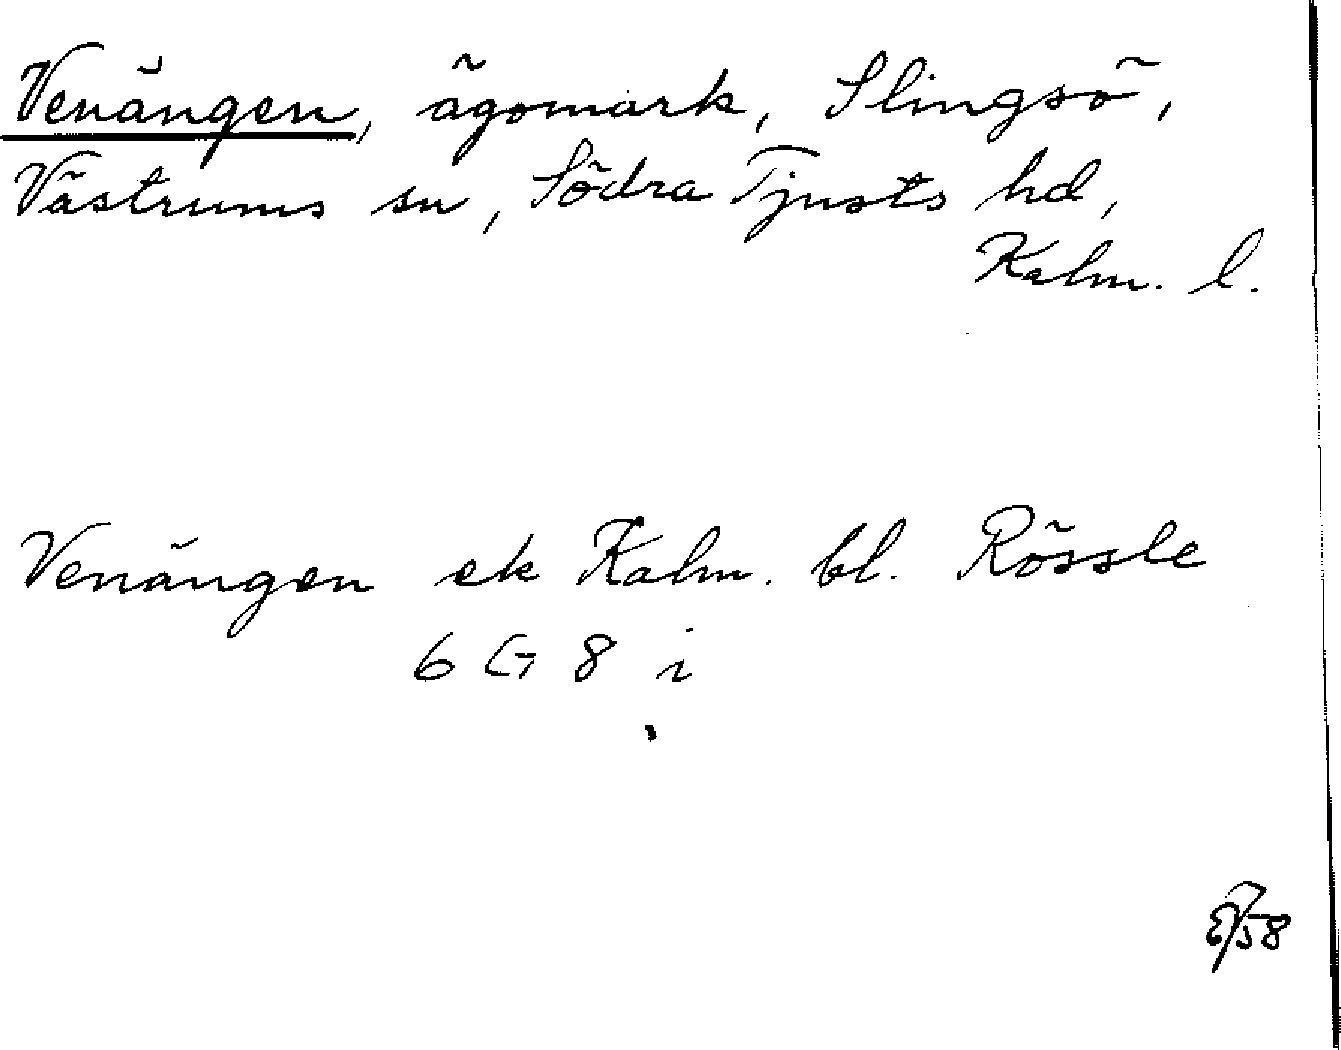 Venängen, ägomark, Slingsö,
Västrums sn, Södra Tjusts hd,
Kalm. l.
Venängen ek Kalm. bl. Rössle
6 G 8 i
58